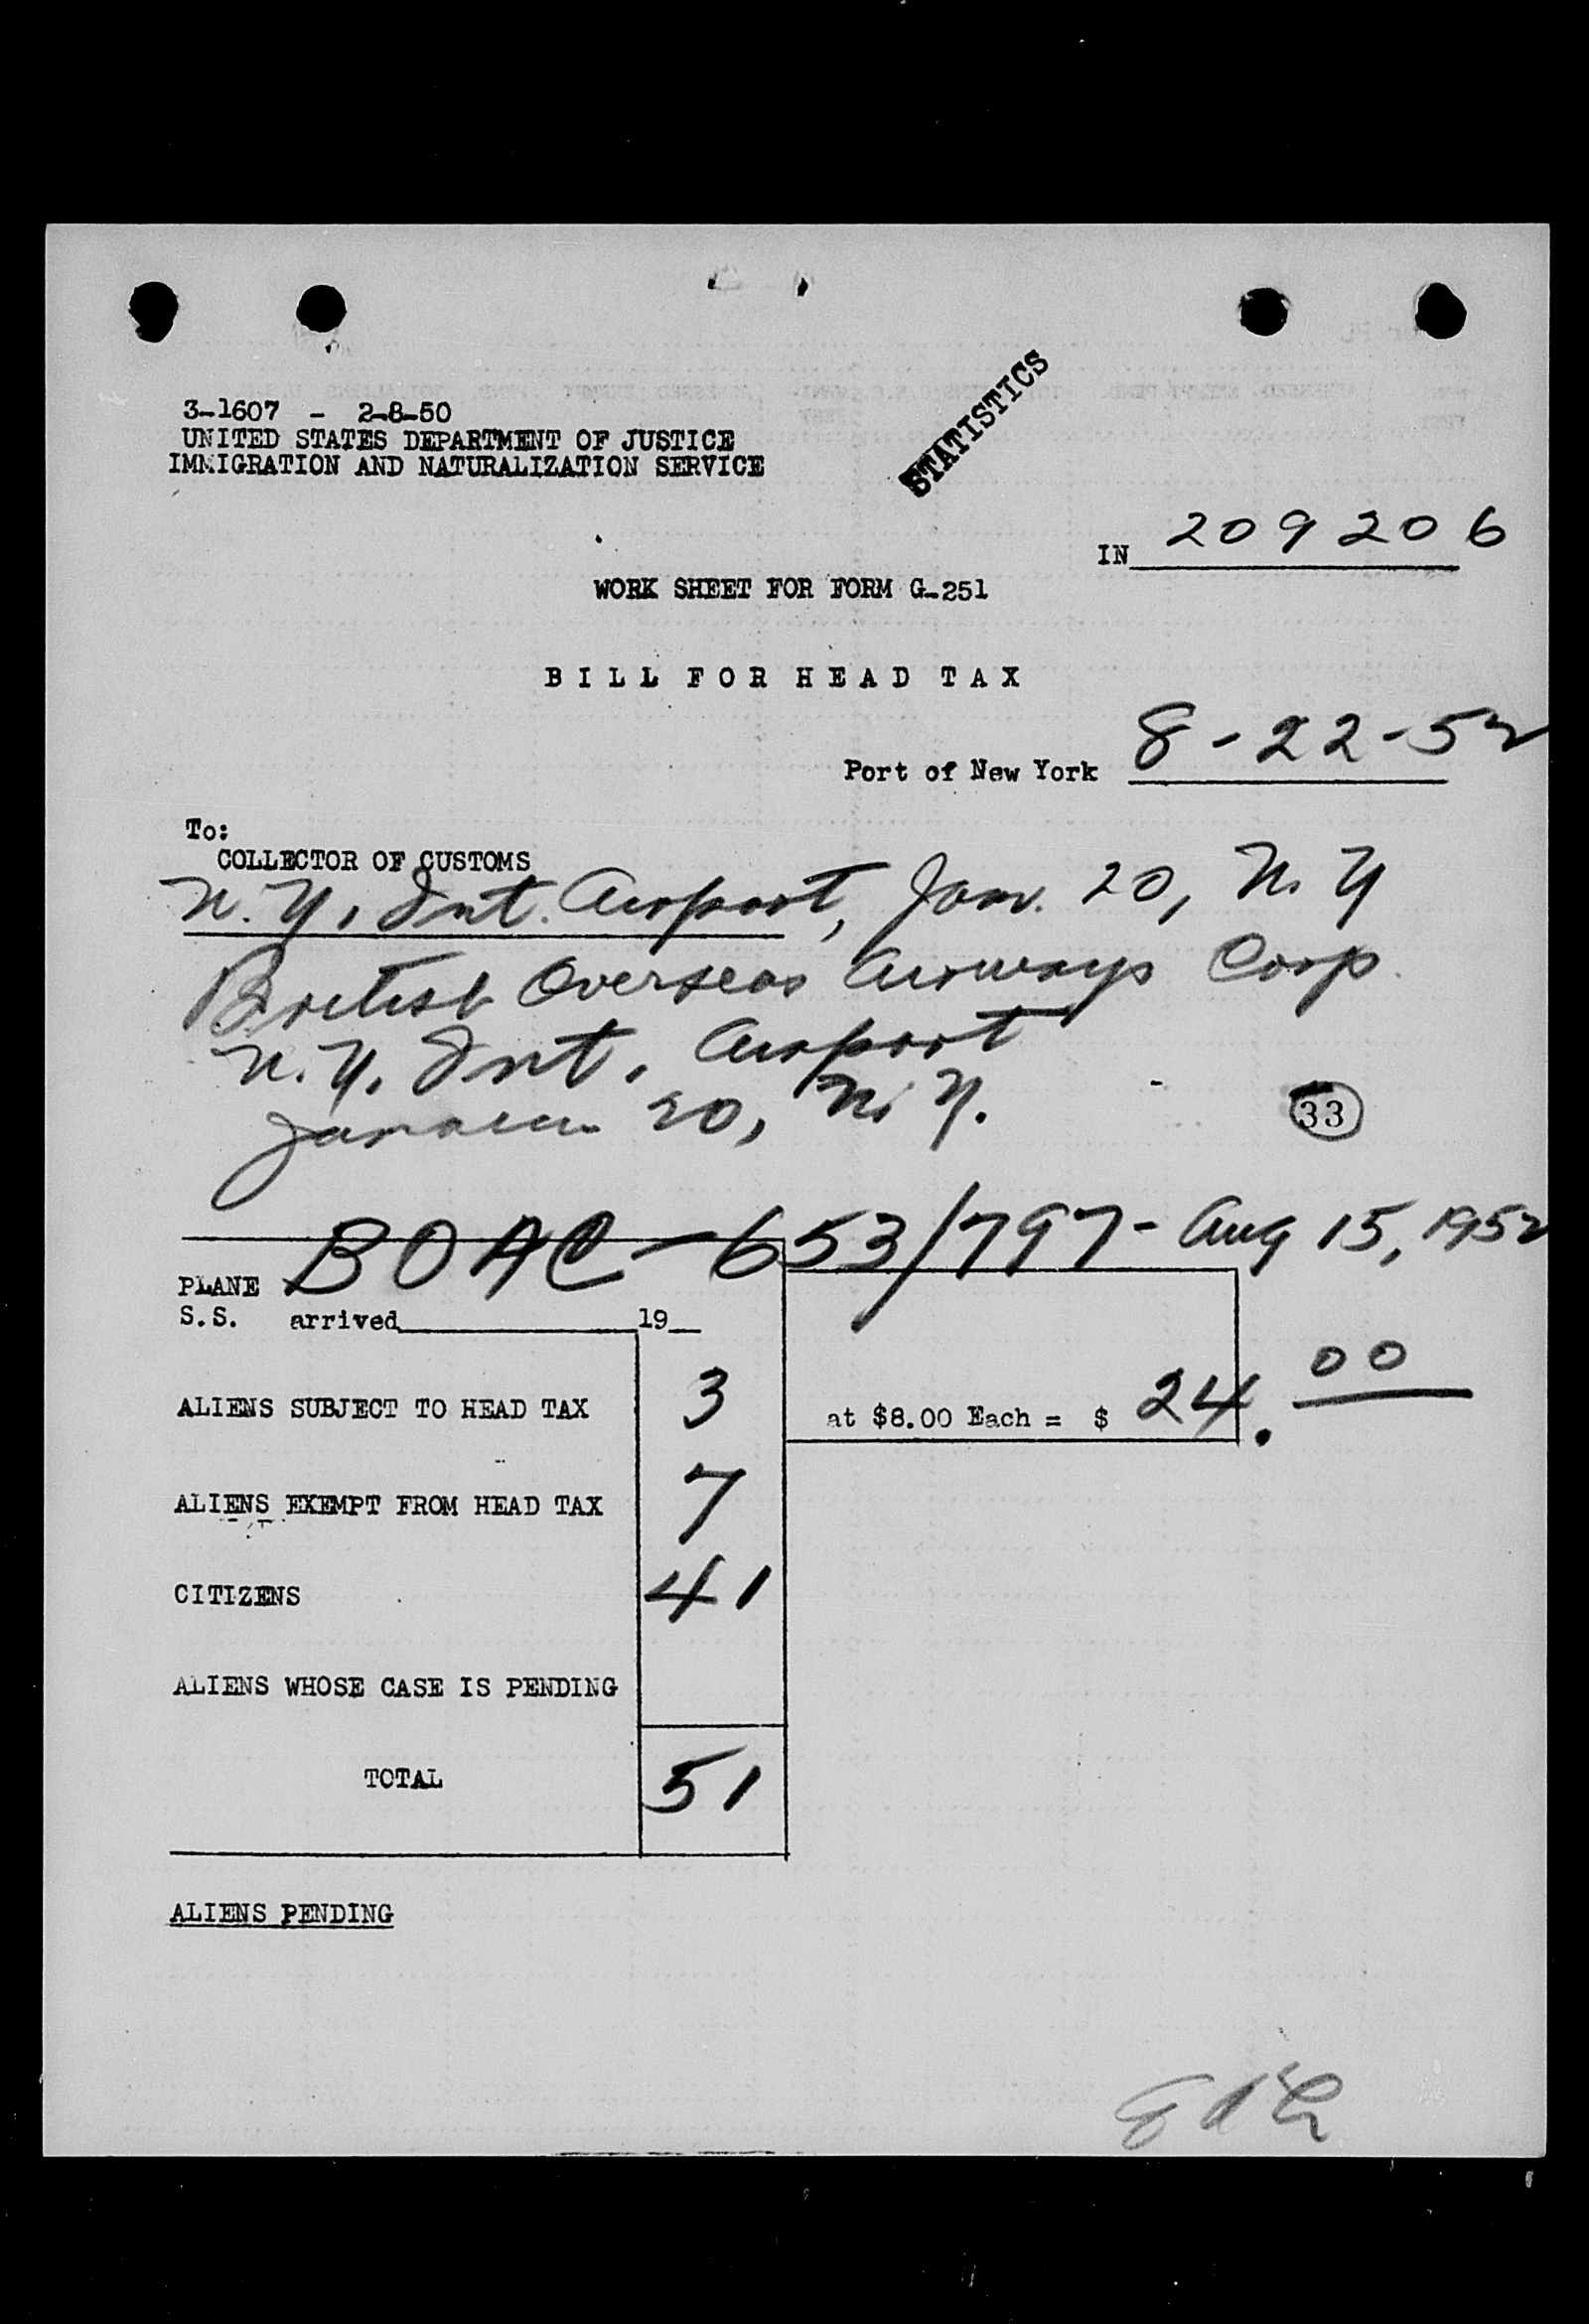 3-1607 - 2-8-50
UNITED STATES DEPARTMENT OF JUSTICE
IMMIGRATION AND NATURALIZATION SERVICE
STATISTICS
IN 209206
WORK SHEET FOR FORM G-251
BILL FOR HEAD TAX
Port of New York 8-22-52
To:
COLLECTOR OF CUSTOMS
N.Y. Int. Airport, Jam. 20, N.Y
British Overseas Airways Corp.
N.Y. Int. Airport
Jamaica 20, N.Y.
33
BOAC-653/797- Aug 15, 1952
PLANE
S.S. arrived 19
ALIENS SUBJECT TO HEAD TAX 3 at $8.00 Each = $ 24.00
ALIENS EXEMPT FROM HEAD TAX 7
CITIZENS 41
ALIENS WHOSE CASE IS PENDING
TOTAL 51
ALIENS PENDING